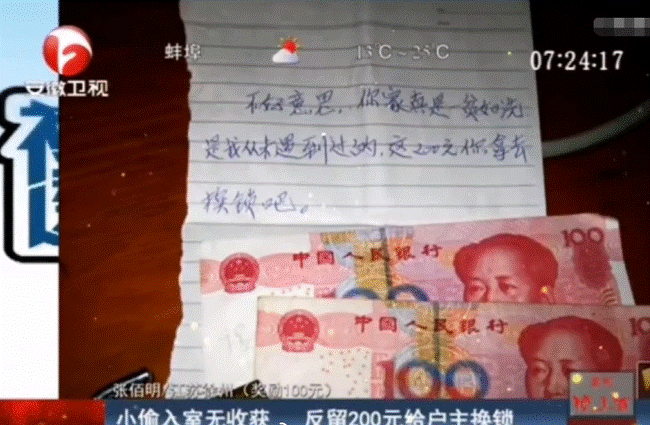 安徽卫视
蚌埠
13℃~25℃
07:24:17
不好意思,你家真是一贫如洗
是我从未遇到过的,这200元你拿去
换锁吧。
中国人民银行
100
100
中国人民银行
10
张佰明 江苏徐州(奖励100元)
小偷入室无收获 反留200元给户主换锁